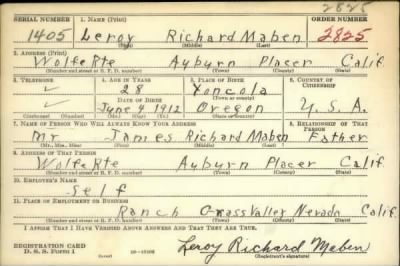 2825
SERIAL NUMBER 1. NAME (Print) ORDER NUMBER
1405 Leroy Richard Maben 2825
(First) (Middle) (Last)
2. ADDRESS (Print)
Wolfe Rte Auburn Placer Calif.
(Number and street or R. F. D. number) (Town) (County) (State)
3. TELEPHONE 4. AGE IN YEARS 5. PLACE OF BIRTH 6. COUNTRY OF CITIZENSHIP
28 Yoncola
DATE OF BIRTH (Town or county)
June 4 1912 Oregon U.S.A.
(Exchange) (Number) (Mo.) (Day) (Yr.) (State or country)
7. NAME OF PERSON WHO WILL ALWAYS KNOW YOUR ADDRESS 8. RELATIONSHIP OF THAT PERSON
Mr James Richard Maben Father
(Mr., Mrs., Miss) (First) (Middle) (Last)
9. ADDRESS OF THAT PERSON
Wolfe Rte Auburn Placer Calif
(Number and street or R. F. D. number) (Town) (County) (State)
10. EMPLOYER'S NAME
Self
11. PLACE OF EMPLOYMENT OR BUSINESS
Ranch Grass Valley Nevada Calif.
(Number and street or R. F. D. number) (Town) (County) (State)
I AFFIRM THAT I HAVE VERIFIED ABOVE ANSWERS AND THAT THEY ARE TRUE.
REGISTRATION CARD
D. S. S. FORM 1 Leroy Richard Maben
(Registrant's signature)